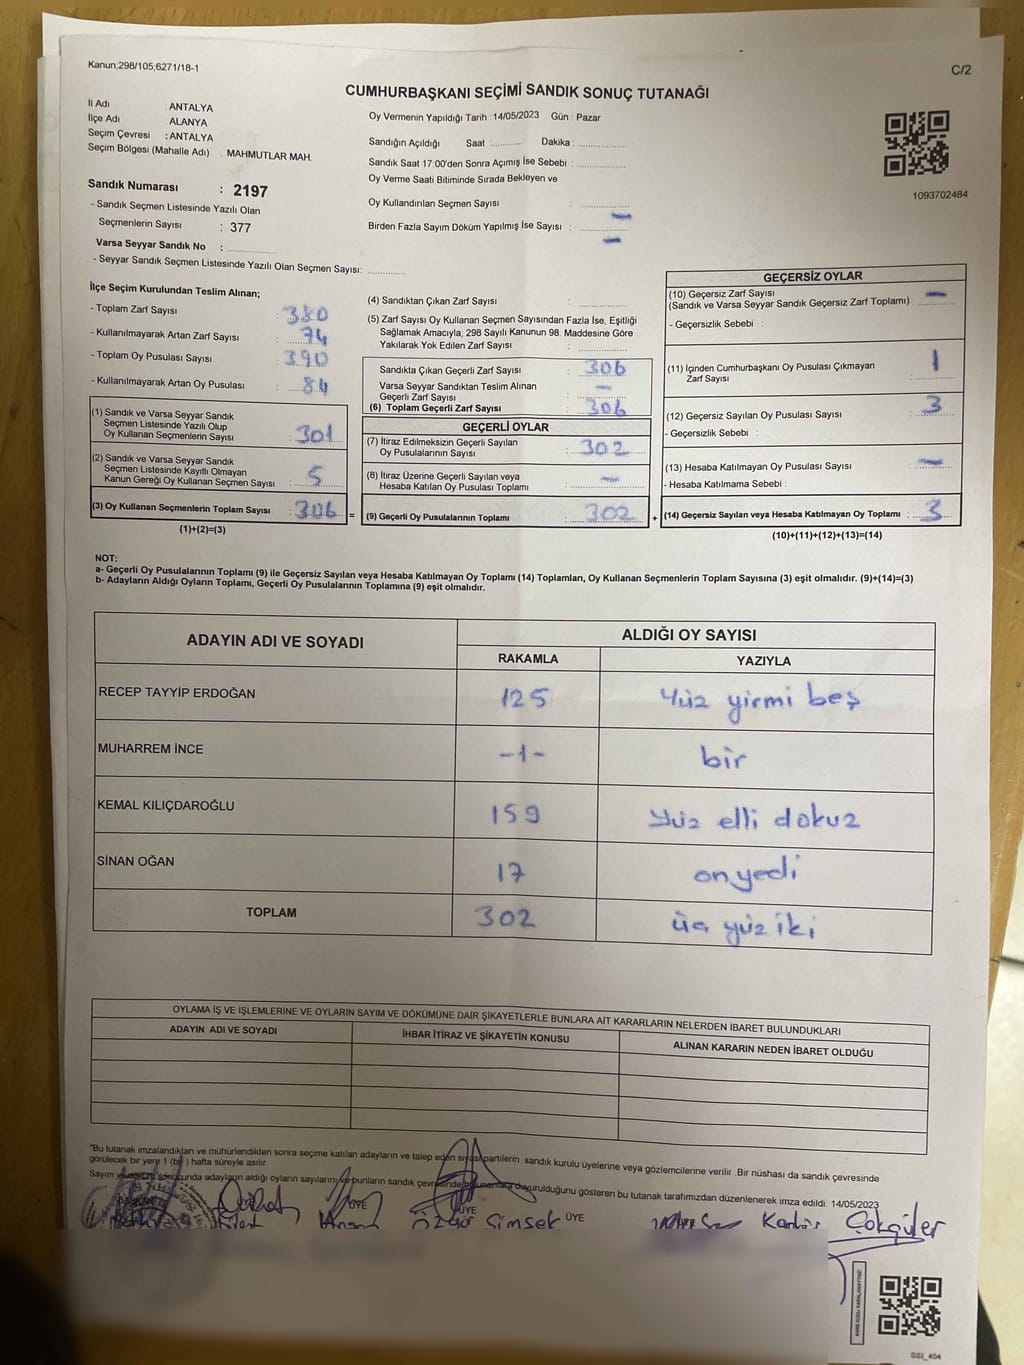 Kanun;298/105;6271/18-1
C/2
CUMHURBAŞKANI SEÇİMİ SANDIK SONUÇ TUTANAĞI
İl Adı : ANTALYA
İlçe Adı : ALANYA
Seçim Çevresi : ANTALYA
Seçim Bölgesi (Mahalle Adı) : MAHMUTLAR MAH.
Sandık Numarası : 2197
- Sandık Seçmen Listesinde Yazılı Olan
Seçmenlerin Sayısı : 377
Varsa Seyyar Sandık No :
- Seyyar Sandık Seçmen Listesinde Yazılı Olan Seçmen Sayısı:
Oy Vermenin Yapıldığı Tarih : 14/05/2023 Gün : Pazar
Sandığın Açıldığı Saat : Dakika :
Sandık Saat 17:00'den Sonra Açımış İse Sebebi :
Oy Verme Saati Bitiminde Sırada Bekleyen ve
Oy Kullandırılan Seçmen Sayısı : -
Birden Fazla Sayım Döküm Yapılmış İse Sayısı : -
1093702484
İlçe Seçim Kurulundan Teslim Alınan;
- Toplam Zarf Sayısı : 380
- Kullanılmayarak Artan Zarf Sayısı : 74
- Toplam Oy Pusulası Sayısı : 390
- Kullanılmayarak Artan Oy Pusulası : 84
(1) Sandık ve Varsa Seyyar Sandık
Seçmen Listesinde Yazılı Olup
Oy Kullanan Seçmenlerin Sayısı : 301
(2) Sandık ve Varsa Seyyar Sandık
Seçmen Listesinde Kayıtlı Olmayan
Kanun Gereği Oy Kullanan Seçmen Sayısı : 5
(3) Oy Kullanan Seçmenlerin Toplam Sayısı : 306 =
(1)+(2)=(3)
(4) Sandıktan Çıkan Zarf Sayısı :
(5) Zarf Sayısı Oy Kullanan Seçmen Sayısından Fazla İse, Eşitliği
Sağlamak Amacıyla; 298 Sayılı Kanunun 98. Maddesine Göre
Yakılarak Yok Edilen Zarf Sayısı :
Sandıkta Çıkan Geçerli Zarf Sayısı : 306
Varsa Seyyar Sandıktan Teslim Alınan
Geçerli Zarf Sayısı : -
(6) Toplam Geçerli Zarf Sayısı : 306
GEÇERLİ OYLAR
(7) İtiraz Edilmeksizin Geçerli Sayılan
Oy Pusulalarının Sayısı : 302
(8) İtiraz Üzerine Geçerli Sayılan veya
Hesaba Katılan Oy Pusulası Toplamı : -
(9) Geçerli Oy Pusulalarının Toplamı : 302 +
GEÇERSİZ OYLAR
(10) Geçersiz Zarf Sayısı
(Sandık ve Varsa Seyyar Sandık Geçersiz Zarf Toplamı) : -
- Geçersizlik Sebebi :
(11) İçinden Cumhurbaşkanı Oy Pusulası Çıkmayan
Zarf Sayısı : 1
(12) Geçersiz Sayılan Oy Pusulası Sayısı : 3
- Geçersizlik Sebebi :
(13) Hesaba Katılmayan Oy Pusulası Sayısı : -
- Hesaba Katılmama Sebebi :
(14) Geçersiz Sayılan veya Hesaba Katılmayan Oy Toplamı : 3
(10)+(11)+(12)+(13)=(14)
NOT:
a- Geçerli Oy Pusulalarının Toplamı (9) ile Geçersiz Sayılan veya Hesaba Katılmayan Oy Toplamı (14) Toplamları, Oy Kullanan Seçmenlerin Toplam Sayısına (3) eşit olmalıdır. (9)+(14)=(3)
b- Adayların Aldığı Oyların Toplamı, Geçerli Oy Pusulalarının Toplamına (9) eşit olmalıdır.
ADAYIN ADI VE SOYADI
ALDIĞI OY SAYISI
RAKAMLA YAZIYLA
RECEP TAYYİP ERDOĞAN 125 Yüz yirmi beş
MUHARREM İNCE -1- bir
KEMAL KILIÇDAROĞLU 159 Yüz elli dokuz
SİNAN OĞAN 17 onyedi
TOPLAM 302 üç yüz iki
OYLAMA İŞ VE İŞLEMLERİNE VE OYLARIN SAYIM VE DÖKÜMÜNE DAİR ŞİKAYETLERLE BUNLARA AİT KARARLARIN NELERDEN İBARET BULUNDUKLARI
ADAYIN ADI VE SOYADI
İHBAR İTİRAZ VE ŞİKAYETİN KONUSU
ALINAN KARARIN NEDEN İBARET OLDUĞU
*Bu tutanak imzalandıktan ve mühürlendikten sonra seçime katılan adayların ve talep eden siyasi partilerin sandık kurulu üyelerine veya gözlemcilerine verilir .Bir nüshası da sandık çevresinde
görülecek bir yere 1 (bir) hafta süreyle asılır.
Sayım ve döküm sonucunda adayların aldığı oyların sayılarını ve bunların sandık çevresinde duyurulduğunu gösteren bu tutanak tarafımızdan düzenlenerek imza edildi. 14/05/2023
BAŞKAN
ÜYE
ÜYE
ÜYE
ÜYE
Özgür Şimşek
Çokgüler
SSI_404